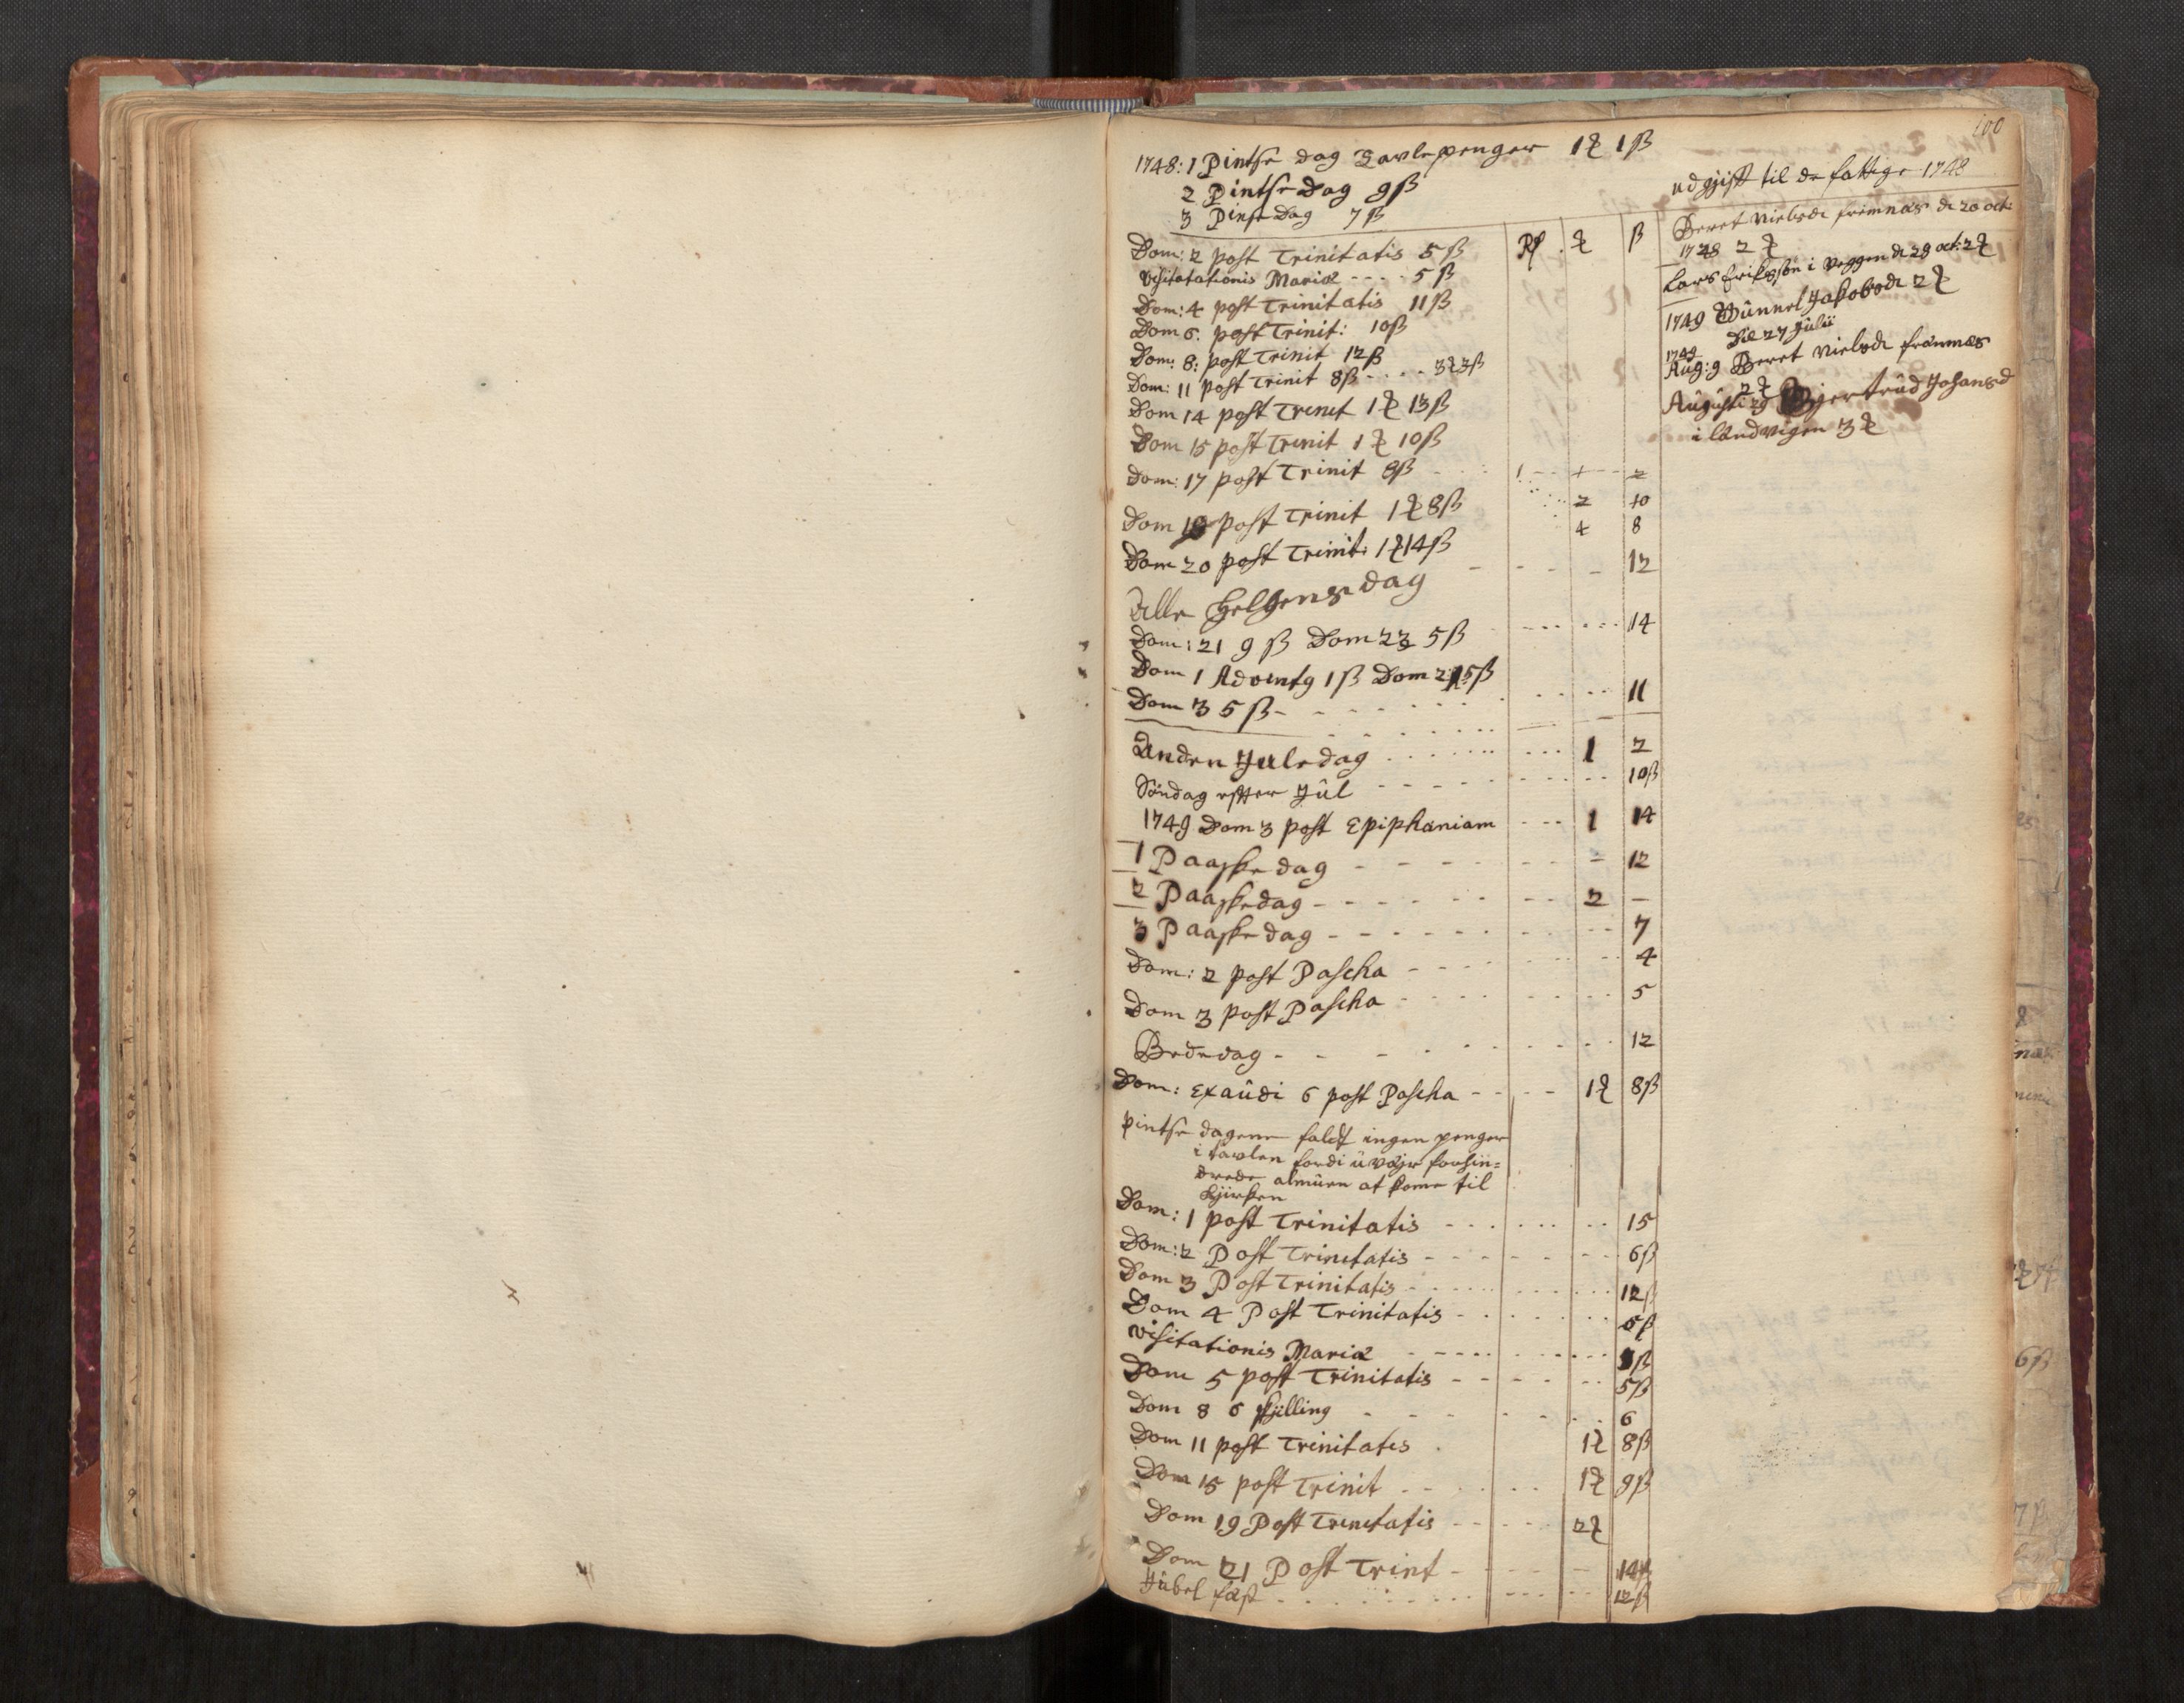 100
1748: 1 Pintse dag Tavlepenger 1 ꝶ 1 ß
2 Pintse Dag 9 ß
3 Pinse Dag 7 ß
Rd ꝶ ß
Dom: 2 post Trinitatis 5 ß
Visitatationis Mariæ - - - - 5 ß
Dom: 4 post Trinitatis 11 ß
Dom 6. post Trinit: 10 ß
Dom: 8: post Trinit 12 ß
Dom: 11 post Trinit 8 ß - - - - 3 ꝶ 3 ß
Dom 14 post Trinit 1 ꝶ 13 ß
Dom 15 post Trinit 1 ꝶ 10 ß
Dom: 17 post Trinit 8 ß - - - 1 - - + - - 2
2 10
Dom 19 post Trinit 1 ꝶ 8 ß
4 8
Dom 20 post Trinit: 1 ꝶ 14 ß
- - - - 12
Alle Helgens dag
- - - - 14
Dom: 21 9 ß Dom 23 5 ß
Dom 1 Advent 9 1 ß Dom 2 5 ß
Dom 3 5 ß - - - - - 11
Anden Juledag - - - - 1 2
Søndag efter Jûl - - - - 10 ß
1749 Dom 3 post Epiphaniam - - - 1 14
1 Paaske dag - - - - 12
2 Paaskedag - - - - 2 -
3 Paaske dag - - - - 7
Dom: 2 post Pascha - - - - 4
Dom 3 post Pascha - - - - 5
Bededag - - - - 12
Dom: Exaûdi 6 post Pascha - - - - 1 ꝶ 8 ß
Pintse dagene faldt ingen penger
i tavlen fordi ûvejr forhin=
drede almûen at kome til
kjirken
Dom: 1 post Trinitatis - - - - 15
Dom: 2 Post Trinitatis - - - - 6 ß
Dom 3 Post Trinitatis - - - - 12 ß
Dom 4 Post Trinitatis - - - - 6 ß
Visitationis Mariæ - - - - ß
Dom 5 post Trinitatis - - - - 5 ß
Dom 8 6 skjelling - - - - 6
Dom 11 post Trinitatis . 1 ꝶ 8 ß
Dom 15 post Trinit - - - - 1 ꝶ 9 ß
Dom 19 Post Trinitatis - - - - 2 ꝶ
Dom 21 Post Trint - - - - 14
Jûbel fæst - - - - 12 ß
udgjift til de fattige 1748
Beret Nielsdr fremnæs d 20 oct:
1748 2 ꝶ
Lars Erikssøn i Veggen d 29 oct: 2 ꝶ
1749 Gûnnel Jakobsdr 2 ꝶ
Die 27 Julii
1749
Aûg: 9 Beret Nielsdr framnæs
2 ꝶ
Aûgûsti 29 Gjertrûd Johansd
i landvigen 3 ꝶ